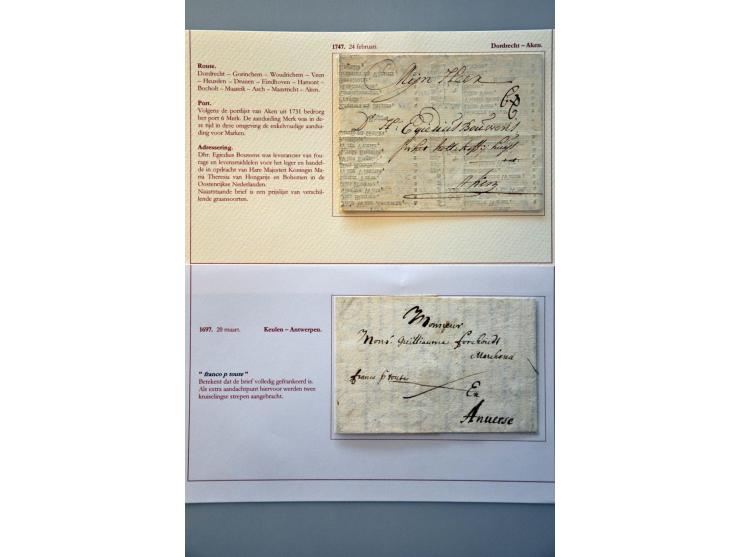 1747. 24 februari. Dordrecht – Aken.
Route.
Dordrecht – Gorinchem – Woudrichem – Veen
– Heusden – Drunen – Eindhoven – Hamont –
Bocholt – Maaseik – Asch – Maastricht – Aken.
Port.
Volgens de portlijst van Aken uit 1731 bedroeg
het port 6 Merk. De aanduiding Merk was in de-
ze tijd in deze omgeving de enkelvoudige aandui-
ding voor Marken.
Adressering.
Dhr. Egeedius Bouwens was leverancier van fou-
rage en levensmiddelen voor het leger en handel-
de in opdracht van Hare Majesteit Koningin Ma-
ria Theresia van Hongarije en Bohemen in de
Oostenrijkse Nederlanden.
Naaststaande brief is een prijslijst van verschil-
lende graansoorten.
Mijn Heer
H: Egedius Bouwens
Aken
1697. 20 maart. Keulen – Antwerpen.
" franco p toute "
Betekent dat de brief volledig gefrankeerd is.
Als extra aandachtpunt hiervoor werden twee
kruiselingse strepen aangebracht.
Monsieur
Mons: Guilliaume forchoudt
Marchona
franco p toute
En
Anuerse